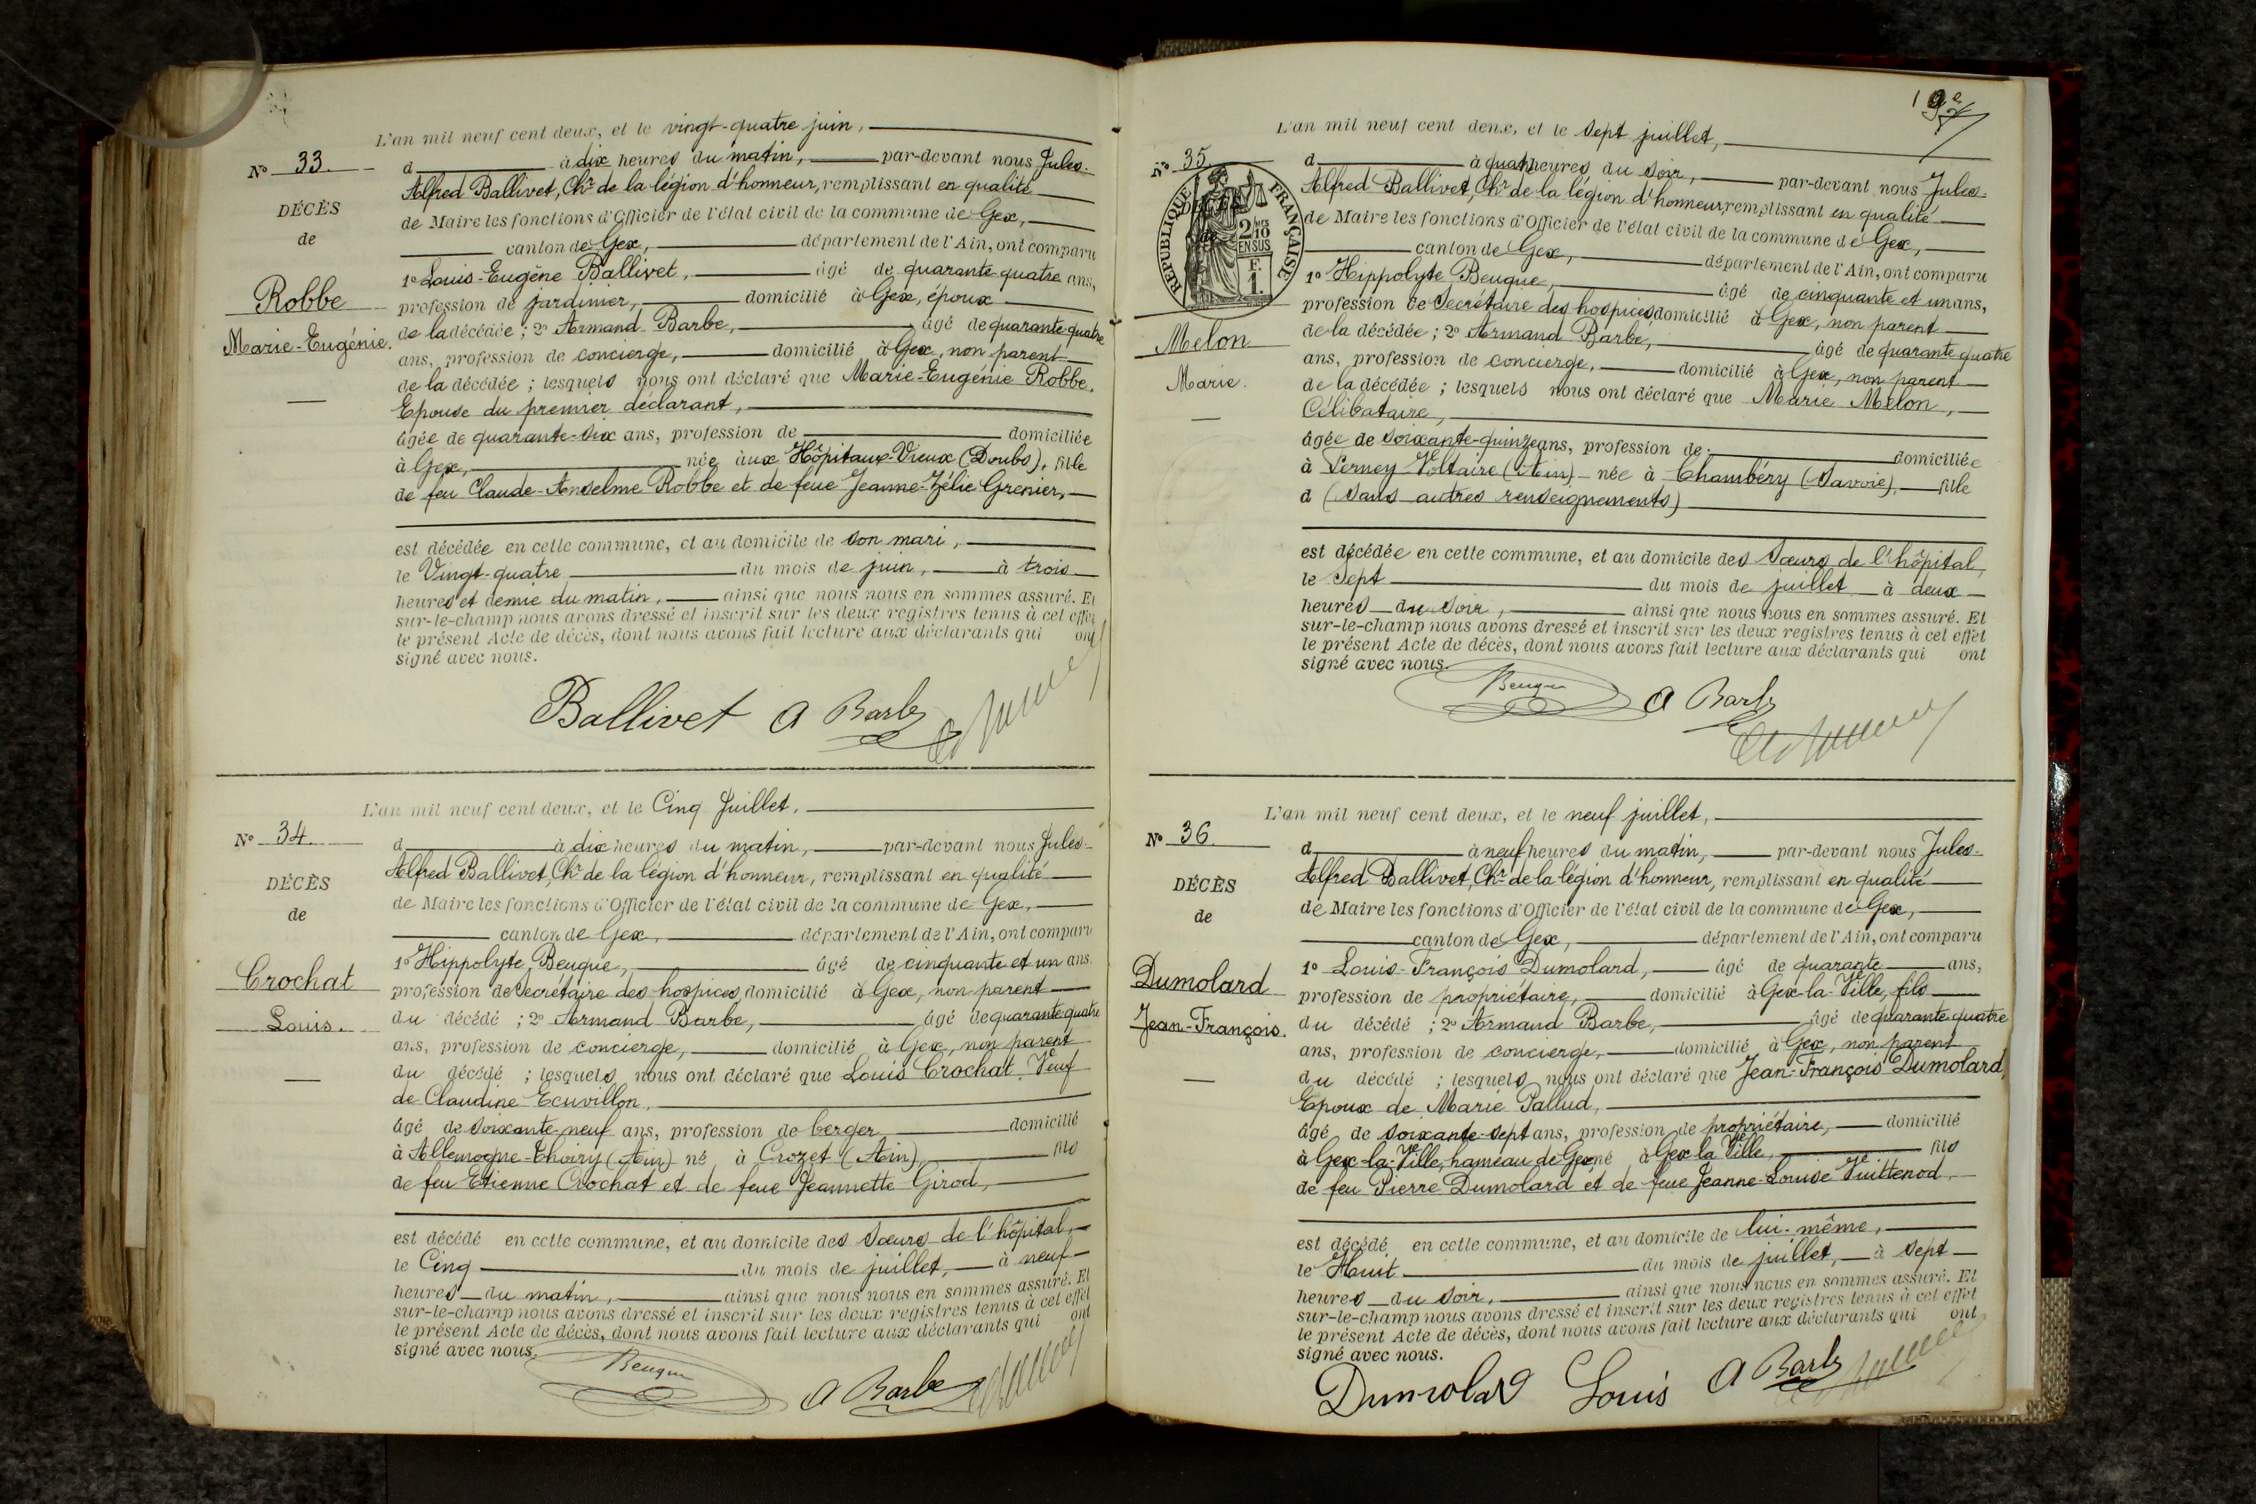 L'an mil neuf cent deux, et le vingt-quatre juin,
No 33.
d à dix heures du matin, par-devant nous Jules-
Alfred Ballivet, Chr de la légion d'honneur, remplissant en qualité
DÉCÈS
de Maire les fonctions d'Officier de l'état civil de la commune de Gex,
de
canton de Gex, département de l'Ain, ont comparu
1o Louis-Eugène Ballivet, âgé de quarante quatre ans,
Robbe
profession de jardinier, domicilié à Gex, époux
Marie-Eugénie.
de la décédée ; 2o Armand Barbe, âgé de quarante-quatre
ans, profession de concierge, domicilié à Gex, non parent
de la décédée ; lesquels nous ont déclaré que Marie-Eugénie Robbe.
Epouse du premier déclarant,
âgée de quarante-six ans, profession de domiciliée
à Gex, née aux Hôpitaux-Vieux (Doubs), fille
de feu Claude-Anselme Robbe et de feue Jeanne-Zélie Grenier,
est décédée en cette commune, et au domicile de son mari,
le Vingt-quatre du mois de juin, à trois
heures et demie du matin, ainsi que nous nous en sommes assuré. Et
sur-le-champ nous avons dressé et inscrit sur les deux registres tenus à cet effet
le présent Acte de décès, dont nous avons fait lecture aux déclarants qui ont
signé avec nous.
Ballivet A Barbe
L'an mil neuf cent deux, et le Cinq Juillet.
No 34.
d à dix heures du matin, par-devant nous Jules-
Alfred Ballivet, Chr de la légion d'honneur, remplissant en qualité
DÉCÈS
de Maire les fonctions d'Officier de l'état civil de la commune de Gex,
de
canton de Gex, département de l'Ain, ont comparu
1o Hippolyte Beuque, âgé de cinquante et un ans.
Crochat
profession de Secrétaire des hospices, domicilié à Gex, non parent
Louis.
du décédé ; 2o Armand Barbe, âgé de quarante-quatre
ans, profession de concierge, domicilié à Gex, non parent
du décédé ; lesquels nous ont déclaré que Louis Crochat. Veuf
de Claudine Ecuvillon.
âgé de soixante-neuf ans, profession de berger domicilié
à Allemogne-Thoiry (Ain) né à Crozet (Ain), fils
de feu Etienne Crochat et de feue Jeannette Girod,
est décédé en cette commune, et au domicile des Sœurs de l'hôpital,
le Cinq du mois de juillet, à neuf
heures du matin, ainsi que nous nous en sommes assuré. Et
sur-le-champ nous avons dressé et inscrit sur les deux registres tenus à cet effet
le présent Acte de décès, dont nous avons fait lecture aux déclarants qui ont
signé avec nous.
Beuque A Barbe
19e
L'an mil neuf cent deux, et le sept juillet,
No 35.
d à quatre heures du soir, par-devant nous Jules-
Alfred Ballivet, Chr de la légion d'honneur, remplissant en qualité
DÉCÈS
de Maire les fonctions d'Officier de l'état civil de la commune de Gex,
de
RÉPUBLIQUE FRANÇAISE
2/10 EN SUS
F. 1.
canton de Gex, département de l'Ain, ont comparu
1o Hippolyte Beuque, âgé de cinquante et un ans,
profession de Secrétaire des hospices domicilié à Gex, non parent
Melon
de la décédée ; 2o Armand Barbe, âgé de quarante quatre
Marie.
ans, profession de concierge, domicilié à Gex, non parent
de la décédée ; lesquels nous ont déclaré que Marie Melon,
Célibataire,
âgée de soixante-quinze ans, profession de domiciliée
à Ferney Voltaire (Ain) née à Chambéry (Savoie), fille
d (sans autres renseignements)
est décédée en cette commune, et au domicile des Sœurs de l'hôpital,
le Sept du mois de juillet à deux
heures du soir, ainsi que nous nous en sommes assuré. Et
sur-le-champ nous avons dressé et inscrit sur les deux registres tenus à cet effet
le présent Acte de décès, dont nous avons fait lecture aux déclarants qui ont
signé avec nous.
Beuque A Barbe
L'an mil neuf cent deux, et le neuf juillet,
No 36.
d à neuf heures du matin, par-devant nous Jules-
Alfred Ballivet, Chr de la légion d'honneur, remplissant en qualité
DÉCÈS
de Maire les fonctions d'Officier de l'état civil de la commune de Gex,
de
canton de Gex, département de l'Ain, ont comparu
1o Louis-François Dumolard, âgé de quarante ans,
Dumolard
profession de propriétaire, domicilié à Gex-la-Ville, fils
Jean-François.
du décédé ; 2o Armand Barbe, âgé de quarante quatre
ans, profession de concierge, domicilié à Gex, non parent
du décédé ; lesquels nous ont déclaré que Jean-François Dumolard,
Epoux de Marie Pallud,
âgé de soixante-sept ans, profession de propriétaire, domicilié
à Gex-la-Ville, hameau de Gex né à Gex la Ville, fils
de feu Pierre Dumolard et de feue Jeanne-Louise Vuittenod.
est décédé en cette commune, et au domicile de lui-même,
le Huit du mois de juillet, à sept
heures du soir, ainsi que nous nous en sommes assuré. Et
sur-le-champ nous avons dressé et inscrit sur les deux registres tenus à cet effet
le présent Acte de décès, dont nous avons fait lecture aux déclarants qui ont
signé avec nous.
Dumolard Louis A Barbe